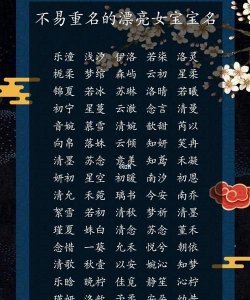 不易重名的漂亮女宝宝名
乐潼 浅汐 伊洛 若柒 洛灵
栀柔 梦绾 森屿 云初 星柔
锦夏 若冰 苏琳 洛晴 若曦
初宁 星蔓 云澈 念言 清曼
音婉 慕雪 清婉 歆甜 芮以
向帛 落姝 云倾 知妍 笑冉
清墨 苏念 意美 知鸢 禾凝
妍初 星空 初暖 南汐 初思
清允 禾苑 璃书 今安 南乔
絮雪 若初 清秋 梦祈 清墨
瑾夏 姝白 清念 苏念 堇禾
念惜 一葵 允禾 悦兮 朝依
清歌 秋壹 以安 婉沁 知梦
乐晗 晚柠 佳克 静笙 沁柠